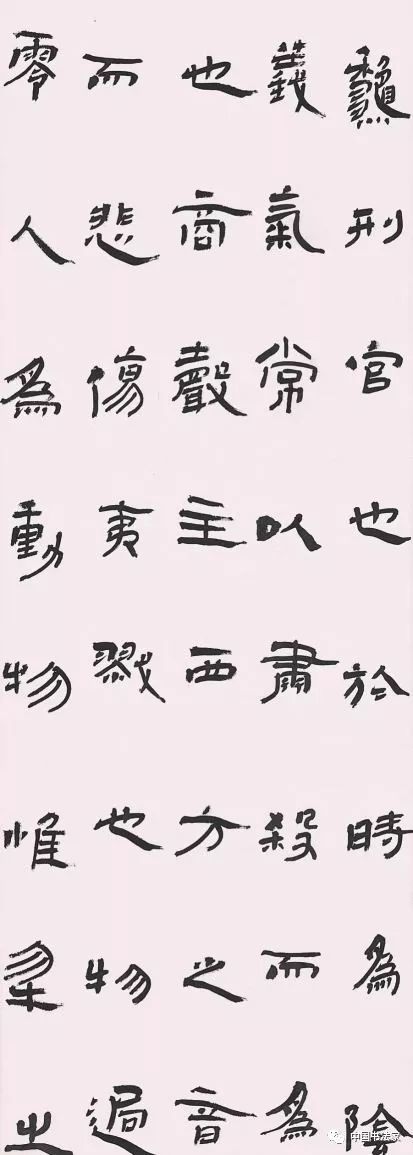 龝刑官也於時為陰
義氣常以肅殺而為
也商聲主西方之音
而悲傷夷戮也物過
零人為動物惟之
中国书法家